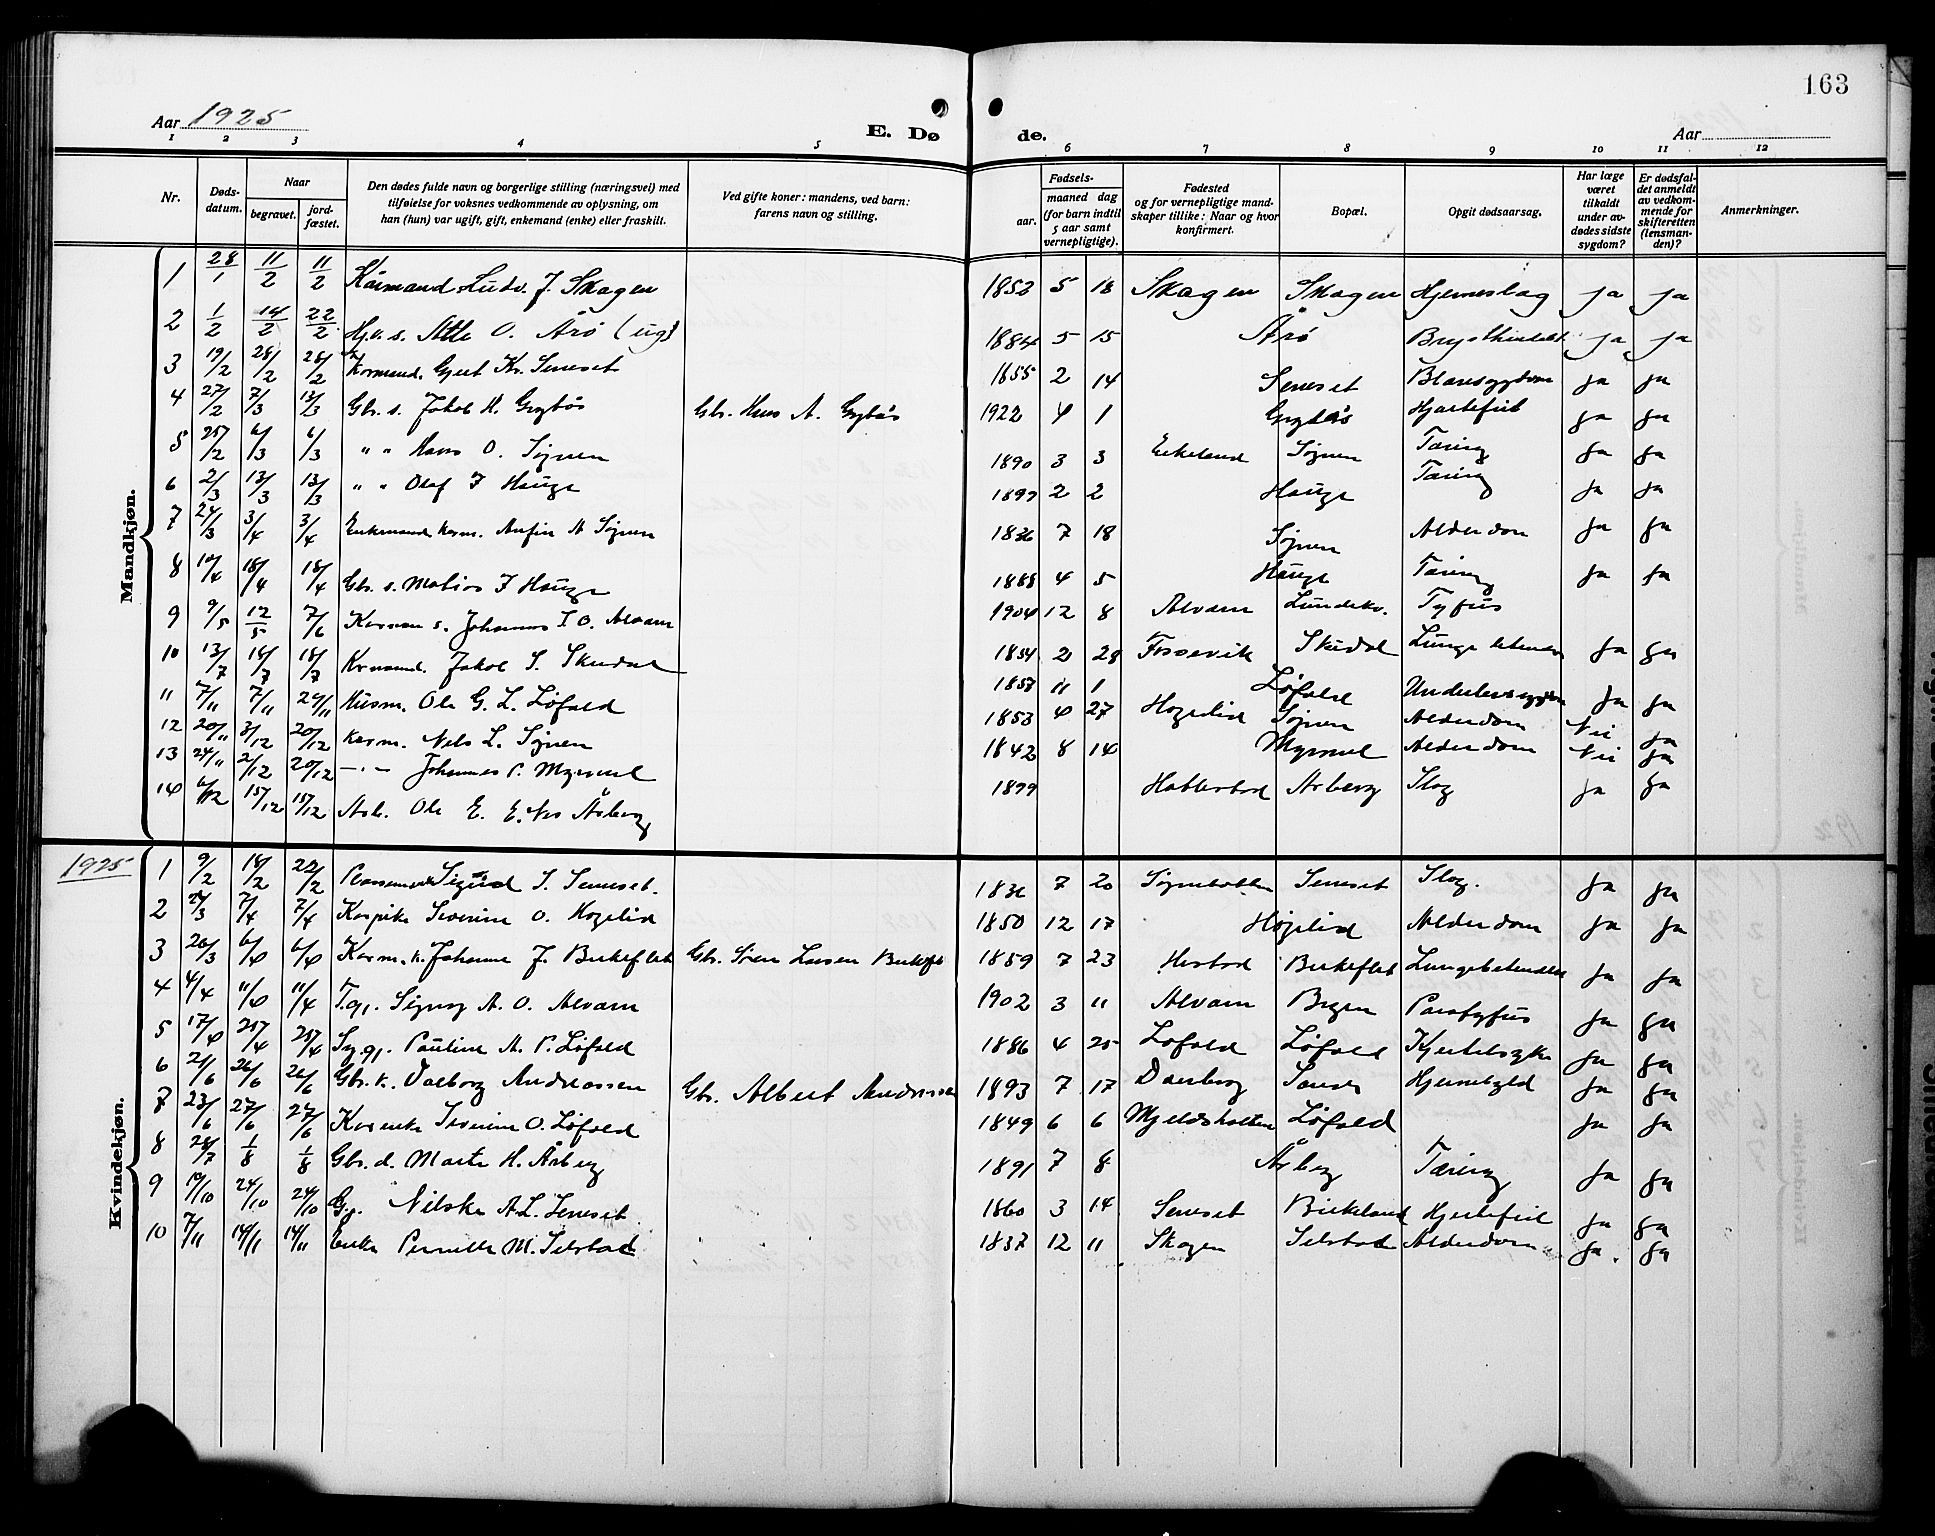 163
Aar 1925
E. Dø de.
Aar
1 2 3 4 5 6 7 8 9 10 11 12
Nr.
Døds-
datum.
Naar
begravet.
jord-
fæstet.
Den dødes fulde navn og borgerlige stilling (næringsvei) med
tilføielse for voksnes vedkommende av oplysning, om
han (hun) var ugift, gift, enkemand (enke) eller fraskilt.
Ved gifte koner: mandens, ved barn:
farens navn og stilling.
Fødsels-
aar.
maaned dag
(for barn indtil
5 aar samt
vernepligtige).
Fødested
og for vernepligtige mand-
skaper tillike: Naar og hvor
konfirmert.
Bopæl.
Opgit dødsaarsag.
Har læge
været
tilkaldt
under av-
dødes sidste
sygdom?
Er dødsfal-
det anmeldt
av vedkom-
mende for
skifteretten
(lensman-
den)?
Anmerkninger.
Mandkjøn.
1 28/1 11/2 11/2 Kårmand Ludv. J. Skagen 1852 5 18 Skagen Skagen Hjerneslag ja ja
2 1/2 14/2 22/2 Hj.v.s. Atle O. Årø (ug) 1884 5 15 Årø ja ja
3 19/2 28/2 28/2 Kormand. Gjert Kr. Seneset 1855 2 14 Seneset Blæresygdom ja ja
4 27/2 7/3 13/3 Gbr. s. Jakob H. Grytås Gbr. Hans A. Grytås 1922 4 1 Grytås Hjertefeil ja ja
5 25/2 6/3 6/3 " " Hans O. Sognen 1890 3 3 Eikeland Sognen Tæring ja ja
6 2/3 13/3 13/3 " " Olaf J Hauge 1899 2 2 Hauge Tæring ja ja
7 24/3 3/4 3/4 Enkemand korm. Anfin A Sognen 1836 7 18 Sognen Alderdom ja ja
8 10/4 18/4 18/4 Gbr. s. Matias J Hauge 1888 4 5 Hauge Tæring ja ja
9 9/5 12/5 7/6 Korman s. Johannes J. O. Alvær 1904 12 8 Alværn Lundekv. Tyfus
10 13/7 18/7 18/7 Kormand. Jakob S. Skudal 1854 2 28 Fossevik Skudal ja ja
11 7/11 7/11 29/11 Husm. Ole G. L. Løfald 1857 11 1 Løfald Underlivssygdom ja ja
12 20/11 3/12 20/12 Korm. Nels L. Sognen 1853 4 27 Hogelid Sognen Alderdom Nei ja
13 24/11 2/12 20/12 —"— Johannes P. Myrmel 1842 8 14 Myrmel Alderdom Nei ja
14 6/12 15/12 15/12 Arb. Ole E. E. Nes Årberg 1899 Hatlestad Årberg Slag ja ja
1925
Kvindekjøn.
1 9/2 18/2 22/2 Sigrid S. Seneset. 1836 7 20 Sognebotten Seneset Slag. ja ja
2 24/3 7/4 7/4 Korpike Severine O. Hogelid 1850 12 17 Høgelid Alderdom ja ja
3 26/3 6/4 6/4 Korm. k. Johanne J. Birkeflet Gbr. Sören Larsen Birkeflet 1859 7 23 Hestad Birkeflet Lungebetendelse ja ja
4 4/4 11/4 11/4 T.gj. Signy A. O. Alværn 1902 3 11 Alværn Bergen Paratyfus ja ja
5 17/4 25/4 25/4 Sy.gj. Pauline A. P. Løfald 1886 4 25 Løfald Løfald Kjertelsyke ja ja
6 21/6 26/6 26/6 Gbr. k. Valborg Andreassen Gbr. Albert Andreassen 1893 7 17 Sande Hjernebyld ja ja
7 23/6 27/6 27/6 Korenke Severine O. Løfald 1849 6 6 Mjeldsholten Løfald ja ja
8 28/7 1/8 1/8 Gbr. d. Marta H. Årberg 1891 7 8 Årberg Tæring ja ja
9 19/10 24/10 24/10 G.j. Nilske A. L. Seneset 1860 3 14 Seneset Birkeland Hjertefeil ja ja
10 7/11 14/11 14/11 Enke Pernille M. Selstad 1837 12 11 Skagen Selstad Alderdom ja ja